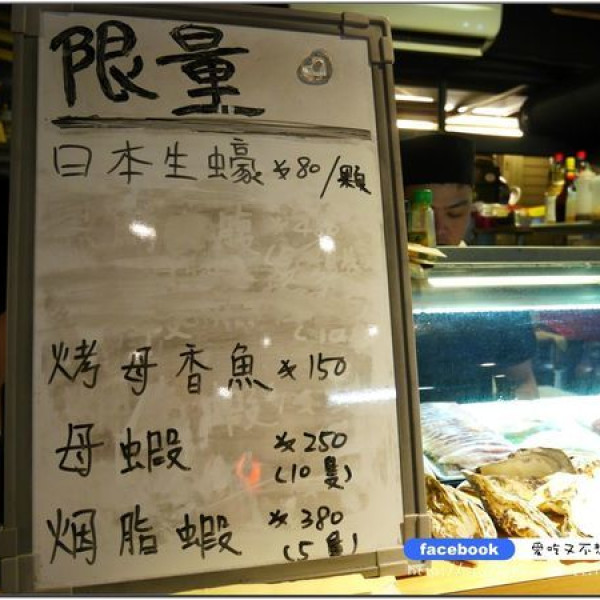 限量
日本生蠔 *80/顆
烤母香魚 *150
母蝦 *250
(10隻)
烟脂蝦 *380
(5隻)
facebook 愛吃又不想